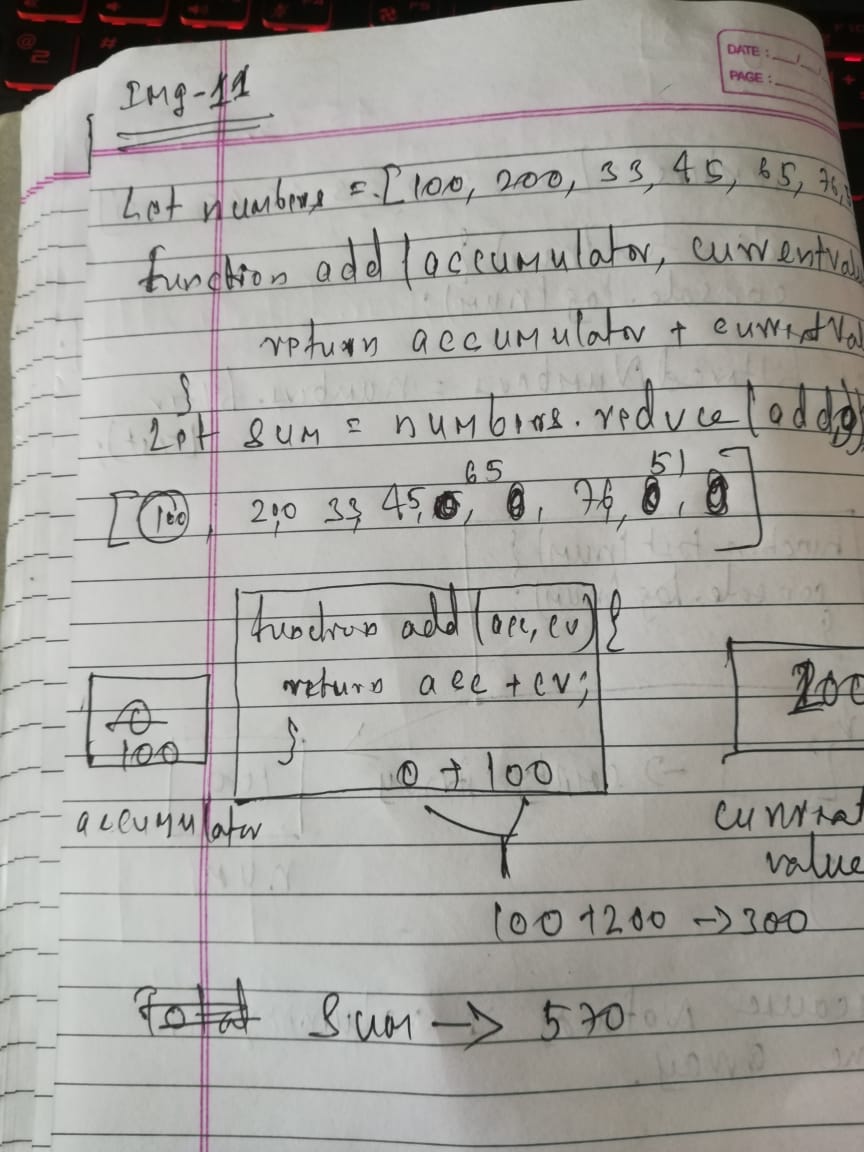 DATE: __/__/
PAGE:
Img-11
Let numbers = [100, 200, 33, 45, 65, 76,
function add (accumulator, currentval
return accumulator + currentVal
}
Let sum = numbers.reduce (add,0)
65 51
[100, 200 33, 45, 0, 0, 76, 0, 0]
function add (acc, cv) {
return acc + cv;
}
0 + 100
0
100
200
accumulator
current
value
100 + 200 -> 300
Total Sum -> 570